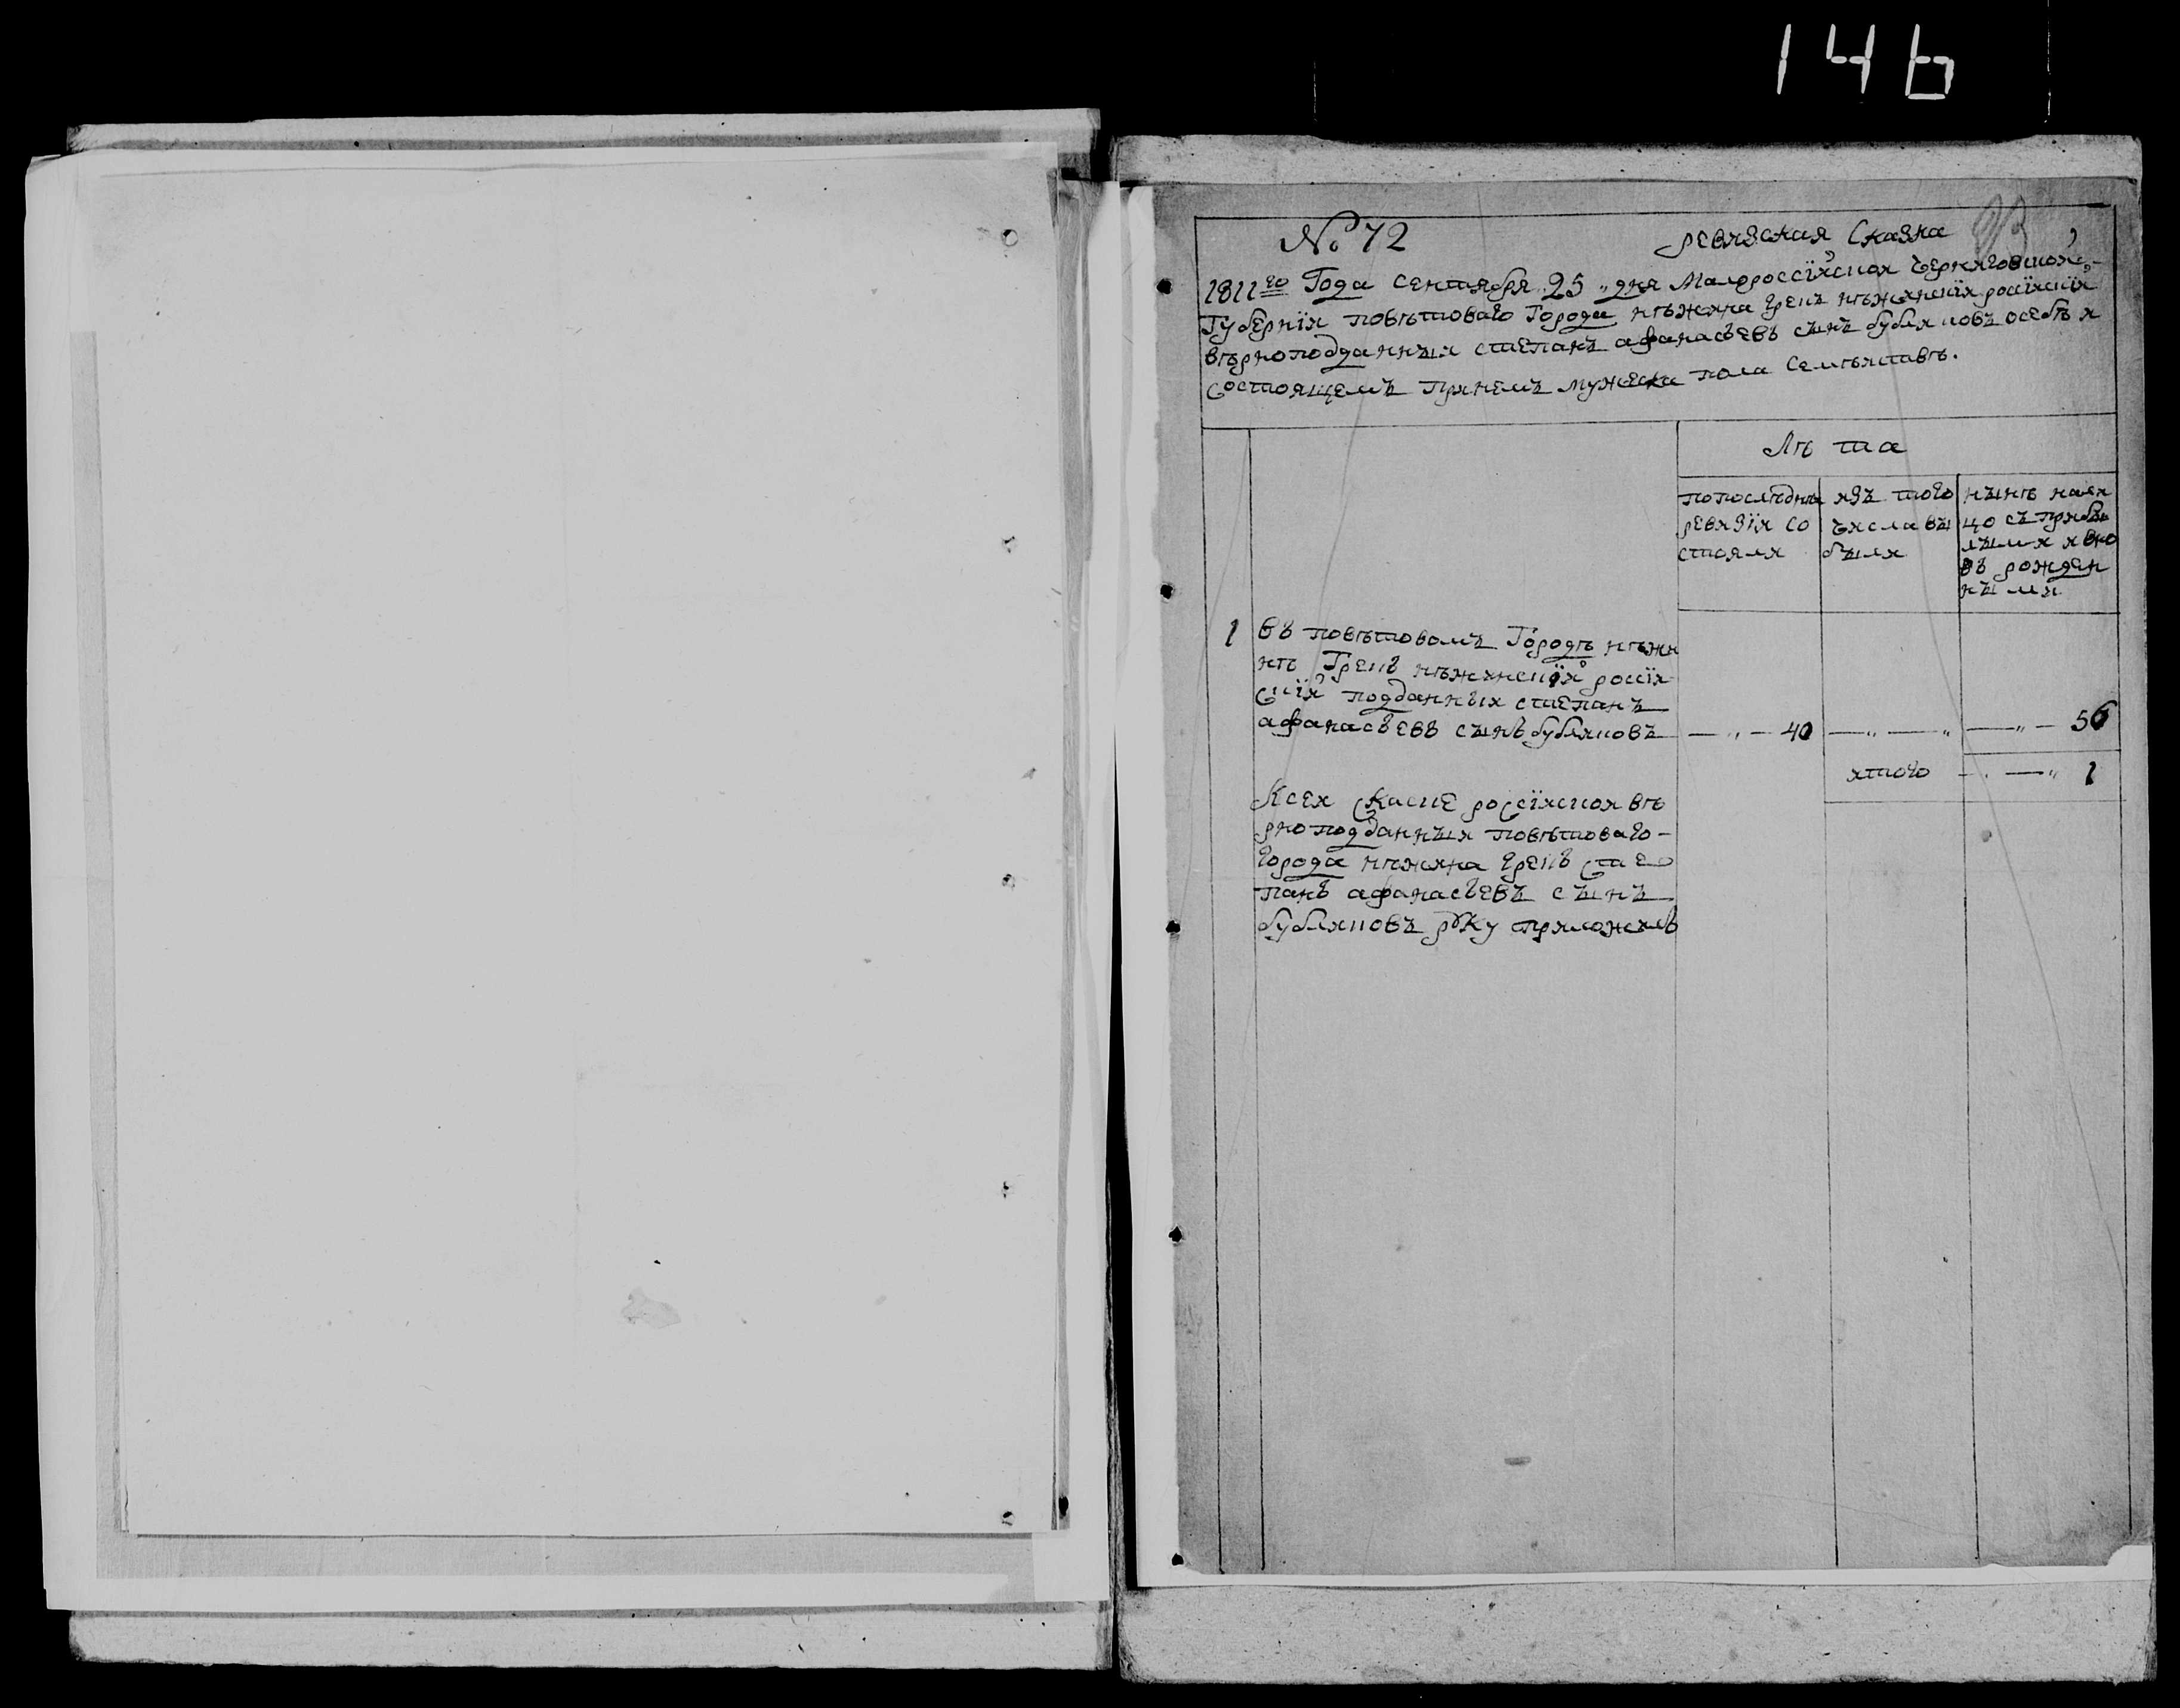 146
№ 72 ревизская Сказка
1811го Года сентября 25 „ дня Малороссийской черниговской
Губернии повѣтоваго Города нѣжина Грекъ нѣжинский российский
вѣрноподданный степанъ афанасьевъ сынъ бубликовъ осебѣ и
состоящемъ принемъ мужеска пола семѣйствѣ.
Лѣ та
попослѣдне изъ того нынѣ нали
ревизии со числа вы цо съ прибы
стояли были лыми и вно
въ рожден
ными
1 въ повѣтовомъ Городѣ нѣжи
нѣ Грекъ нѣжинский россий
ский подданный степанъ
афанасьевъ сынъ бубликовъ — „ — 40 — „ — „ — „ — 56
итого — „ — „ 1
Ксей Скаске российской вѣ
рноподданный повѣтоваго -
города нѣжина грекъ сте
панъ афанасьевъ сынъ
бубликовъ руку приложилъ